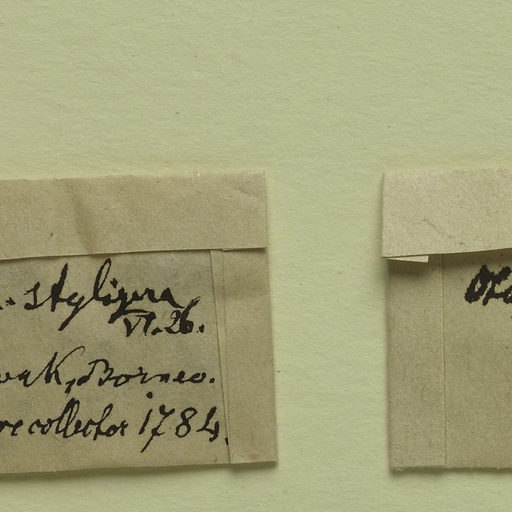 . styligera
VI.26.
wak, Borneo.
re collector 1784.